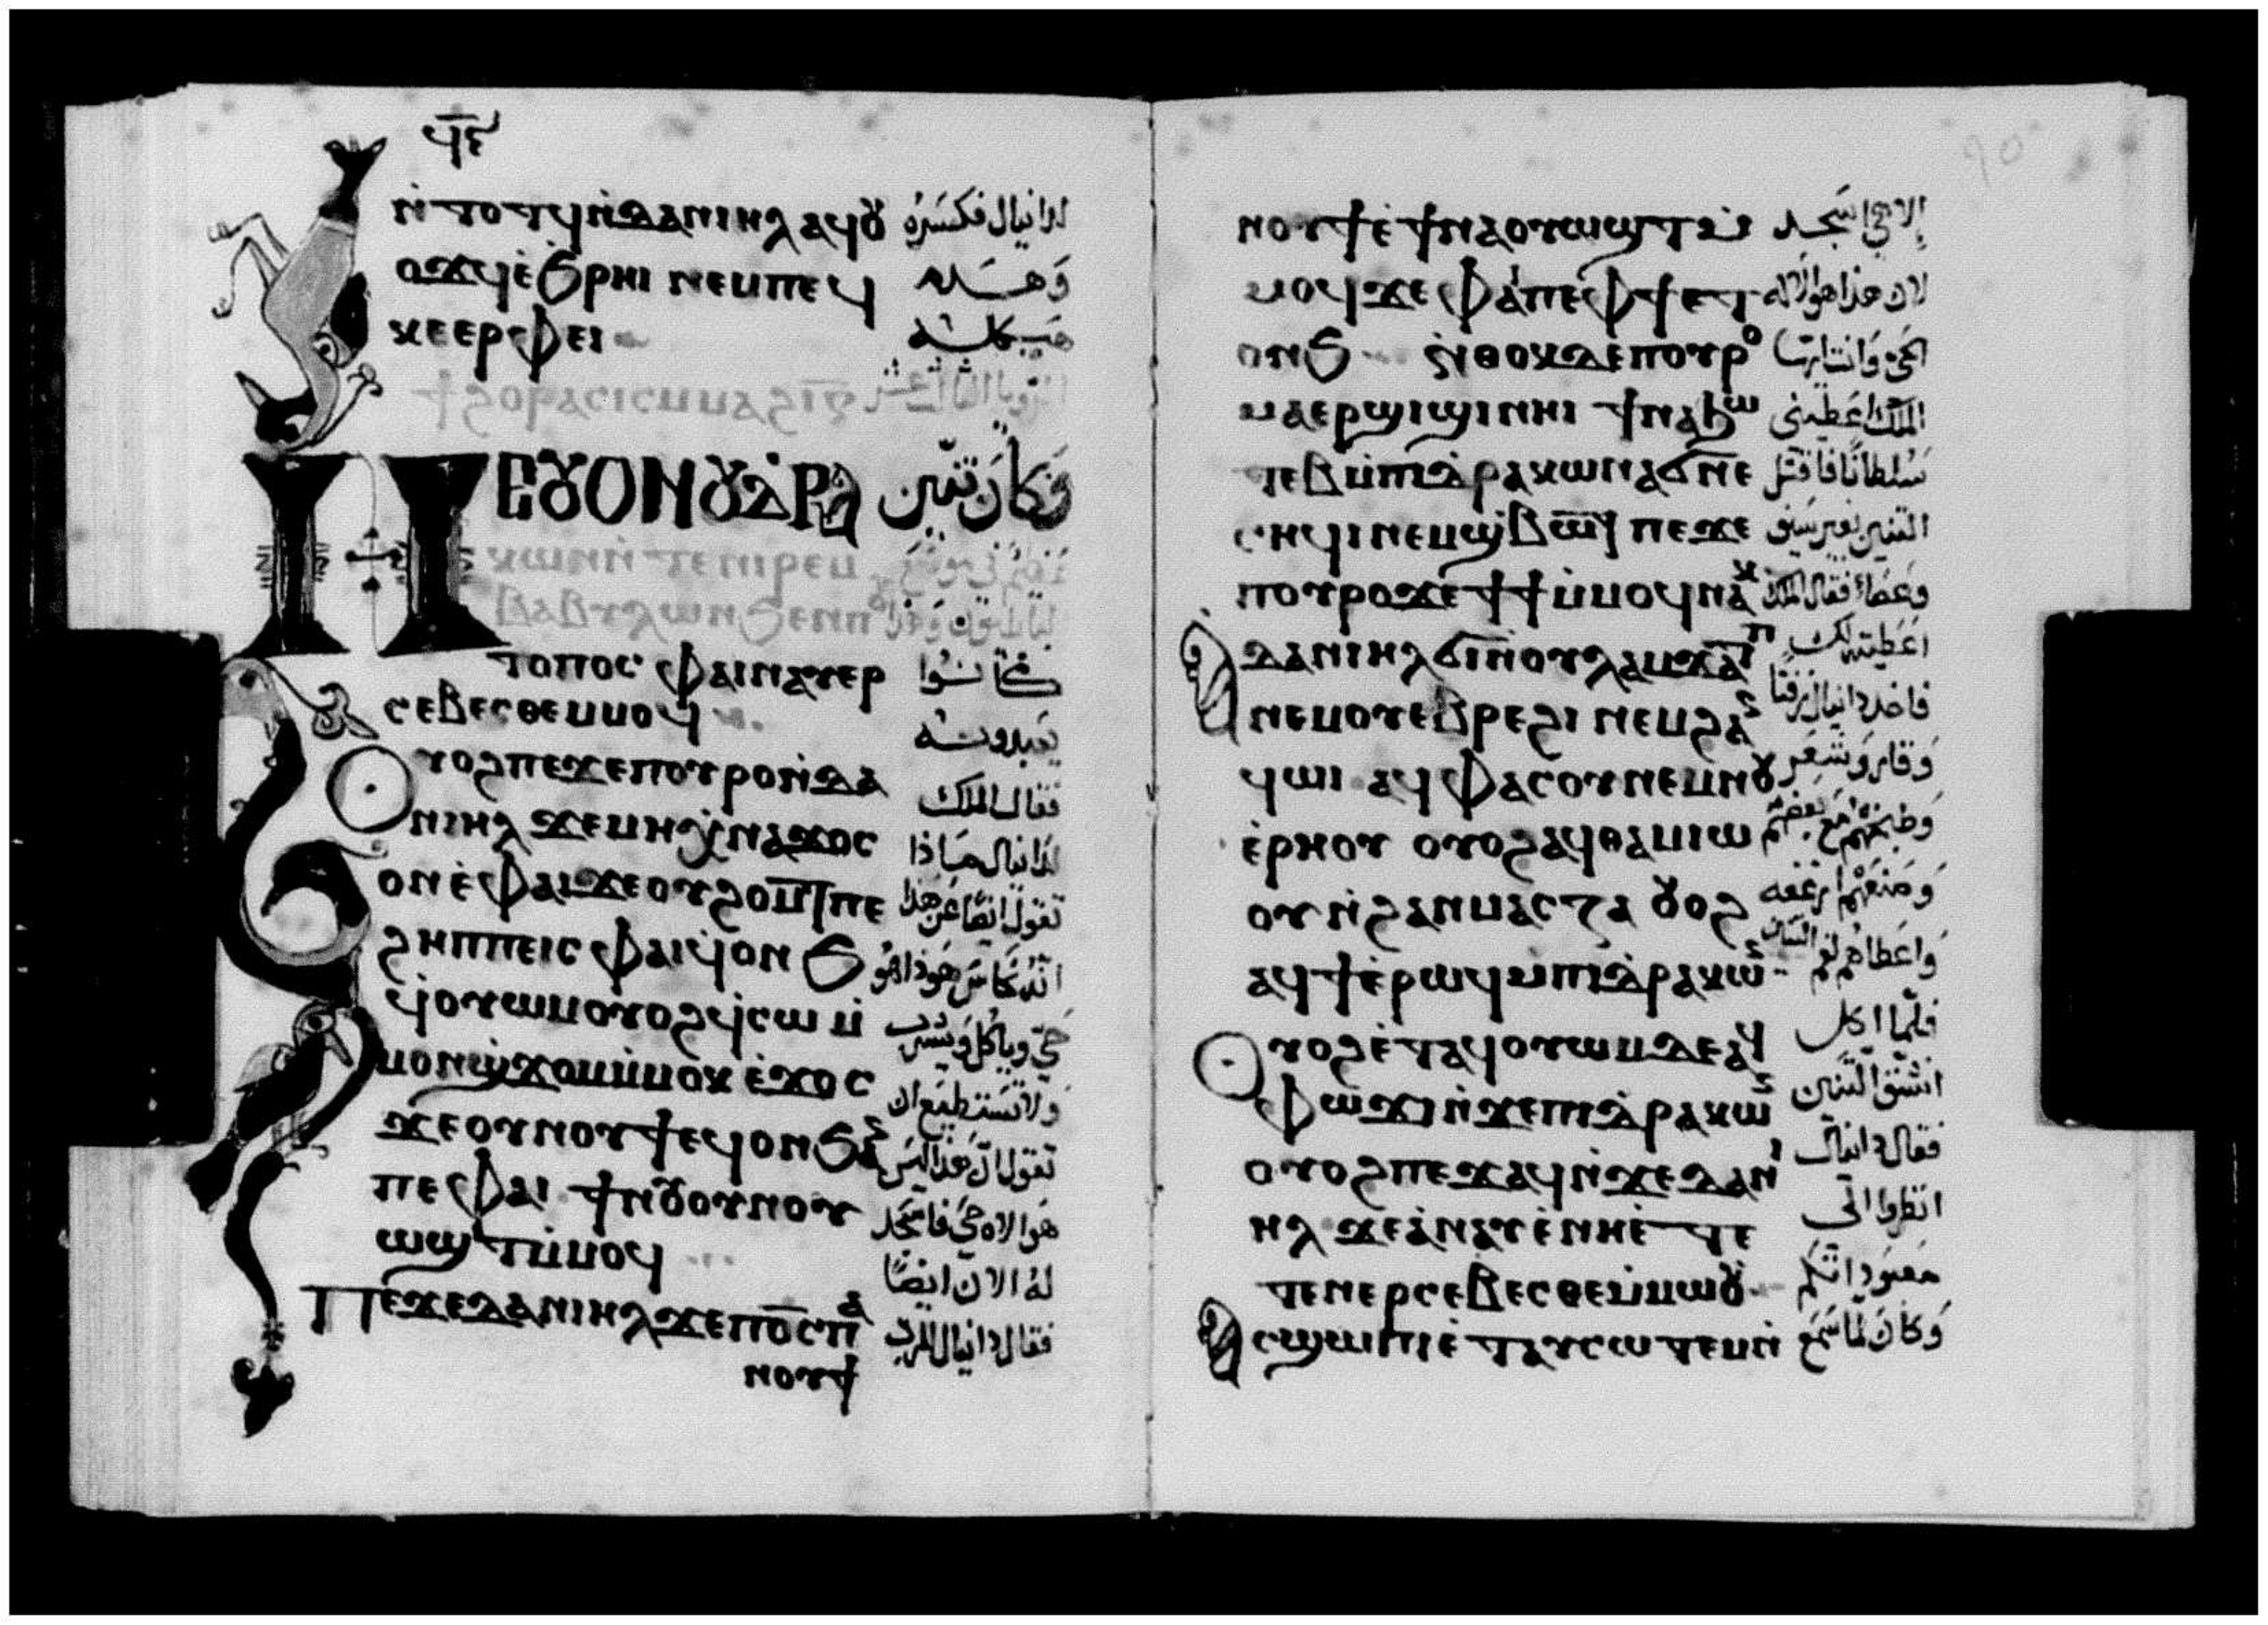 ϥ̅ⲉ̅
ⲛ̀ⲧⲟⲧϥⲛ̀ⲇⲁⲛⲓⲏⲗ ⲁϥⲟⲩ لدانيال فكسره
ⲟϫϥⲉ̀ϧⲣⲏⲓ ⲛⲉⲙⲡⲉϥ وهو
ⲕⲉⲉⲣⲫⲉⲓ
ϯϩⲟⲣⲁⲥⲓⲥⲙⲙⲁϩⲓ̅ⲃ̅ الرويا الثانية عشر
ⲛⲉⲟⲩⲟⲛⲟⲩⲇⲣⲁ وكان تنين
ⲕⲱⲛⲛ̀ⲧⲉⲡⲓⲣⲉⲙ
ⲃⲁⲃⲩⲗⲱⲛϧⲉⲛⲡ
ⲧⲟⲡⲟⲥ ⲫⲁⲓⲛⲁⲩⲉⲣ كانوا
ⲥⲉⲃⲉⲥⲑⲉⲙⲙⲟϥ يعبدونه
ⲟⲩⲟϩⲡⲉϫⲉⲡⲟⲩⲣⲟⲛ̀ⲇⲁ فقال الملك
ⲛⲓⲏⲗ ϫⲉⲙⲏⲭⲛⲁϫⲟⲥ لدانيال ماذا
ⲟⲛⲉ̀ⲫⲁⲓϫⲉⲟⲩϩⲟⲙⲧⲡⲉ تقول ايضا عن هذا
ϩⲏⲡⲡⲉⲓⲥ ⲫⲁⲓϥⲟⲛϧ انه نحاس هوذا هو
ϥⲟⲩⲱⲙⲟⲩⲟϩϥⲥⲱ ⲙ̀ حي وياكل ويشرب
ⲙⲟⲛϣϫⲟⲙⲙ̀ⲙⲟⲕ ⲉ̀ϫⲟⲥ ولا تستطيع ان
ϫⲉⲟⲩⲛⲟⲩϯⲉϥⲟⲛϧⲁ تقول ان هذا ليس
ⲡⲉ ⲫⲁⲓ ϯⲛⲟⲩⲟⲩⲛⲟⲩ هو الاه حي فاسجد
ⲱϣⲧⲙ̀ⲙⲟϥ له الان ايضا
ⲡⲉϫⲉⲇⲁⲛⲓⲏⲗϫⲉⲡⲟ̅ⲥ̅ⲡⲁ فقال دانيال للرب
ⲛⲟⲩϯ
ⲛⲟⲩϯⲉ̀ ϯⲛⲁⲟⲩⲱϣⲧⲙ̀ الاهي اسجد
ⲙⲟϥϫⲉ ⲫⲁⲓⲡⲉⲫϯⲉⲧ لان هذا هو الاله
ⲟⲛϧ ⲛ̀ⲑⲟⲕⲇⲉⲡⲟⲩⲣⲟ الحي وانت ايها
ⲙⲁⲉⲣϣⲓϣⲓⲛⲏⲓ ϯⲛⲁϧⲱ الملك اعطيني
ⲧⲉⲃⲙ̀ⲡⲓⲇⲣⲁⲕⲱⲛⲁϭⲛⲉ سلطانا فاقتل
ⲥⲏϥⲓⲛⲉⲙϣⲃⲱⲧ ⲡⲉϫⲉ التنين بغير سيف
ⲡⲟⲩⲣⲟϫⲉϯϯⲙ̀ⲙⲟϥⲛⲁⲕ وعصا فقال الملك
ⲁⲇⲁⲛⲓⲏⲗϭⲓⲛ̀ⲟⲩⲗⲁⲙϫⲁⲡⲧ اعطيته لك
ⲛⲉⲙⲟⲩⲉⲃⲣⲉϩⲓ ⲛⲉⲙϩⲁ فاخذ دانيال زفتا
ϥⲱⲓ ⲁϥⲫⲁⲥⲟⲩⲛⲉⲙⲛⲟⲩ وقار وشعر
ⲉ̀ⲣⲏⲟⲩ ⲟⲩⲟϩⲁϥⲑⲁⲙⲓⲱ وطبخهم مع بعضهم
ⲟⲩⲛ̀ϩⲁⲛⲙⲁⲥⲧⲁ ⲟⲩⲟϩ وصنعهم ارغفه
ⲁϥϯⲉ̀ⲣⲱϥⲙ̀ⲡⲓⲇⲣⲁⲕⲱ واعطاهم لفم التنين
ⲟⲩⲟϩⲉ̀ⲧⲁϥⲟⲩⲱⲙⲇⲉⲁϥ فلما اكل
ⲫⲱϫⲓⲛ̀ϫⲉⲡⲓⲇⲣⲁⲕⲱ انشق التنين
ⲟⲩⲟϩⲡⲉϫⲁϥⲛ̀ϫⲉⲇⲁⲛⲓ فقال دانيال
ⲏⲗ ϫⲉⲁ̀ⲛⲁⲩⲉ̀ⲛⲏⲉ̀ⲧⲉ انظروا الى
ⲧⲉⲛⲉⲣⲥⲉⲃⲉⲥⲑⲉⲙ̀ⲙⲱⲟⲩ معبوداتكم
ⲁⲥϣⲱⲡⲓⲉ̀ⲧⲁⲩⲥⲱⲧⲉⲙⲛ̀ وكان لما سمع